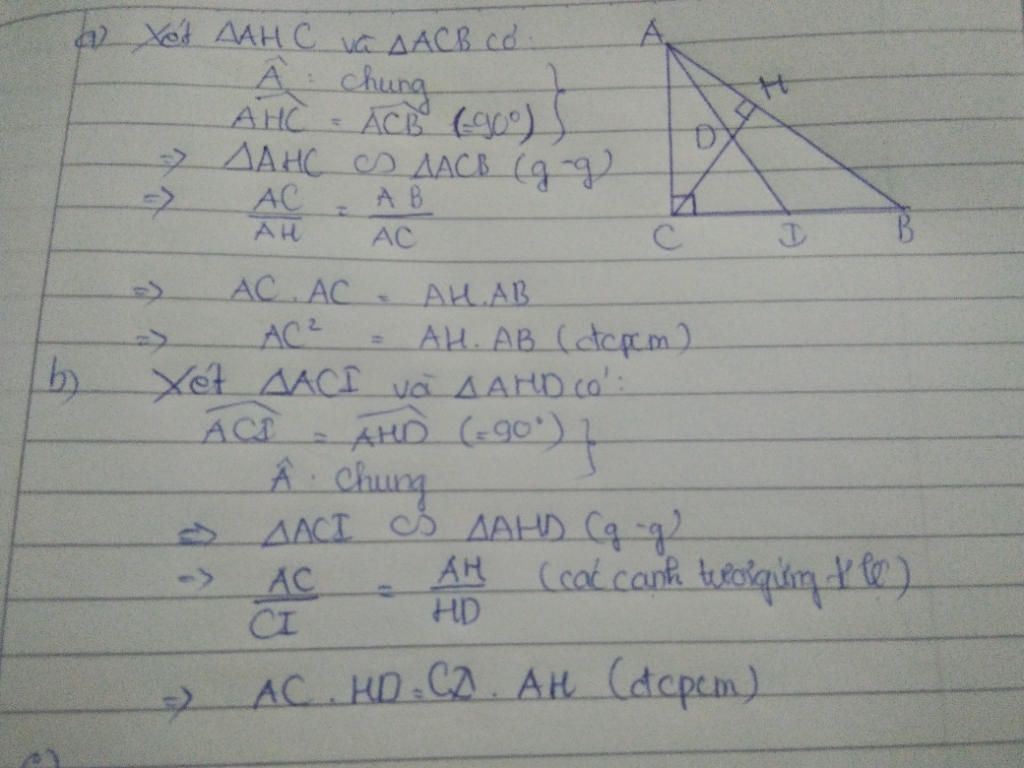 a) Xét ΔAHC và ΔACB có:
Â : chung
AHC = ACB (=90°)
=> ΔAHC ∽ ΔACB (g-g)
=> AC/AH = AB/AC
=> AC.AC = AH.AB
=> AC² = AH.AB (đcpcm)
b) Xét ΔACI và ΔAHD có:
ACI = AHD (=90°)
Â : Chung
=> ΔACI ∽ ΔAHD (g-g)
=> AC/CI = AH/HD (các cạnh tương ứng tỉ lệ)
=> AC.HD = CI.AH (đcpcm)
c)
A
H
D
C
I
B